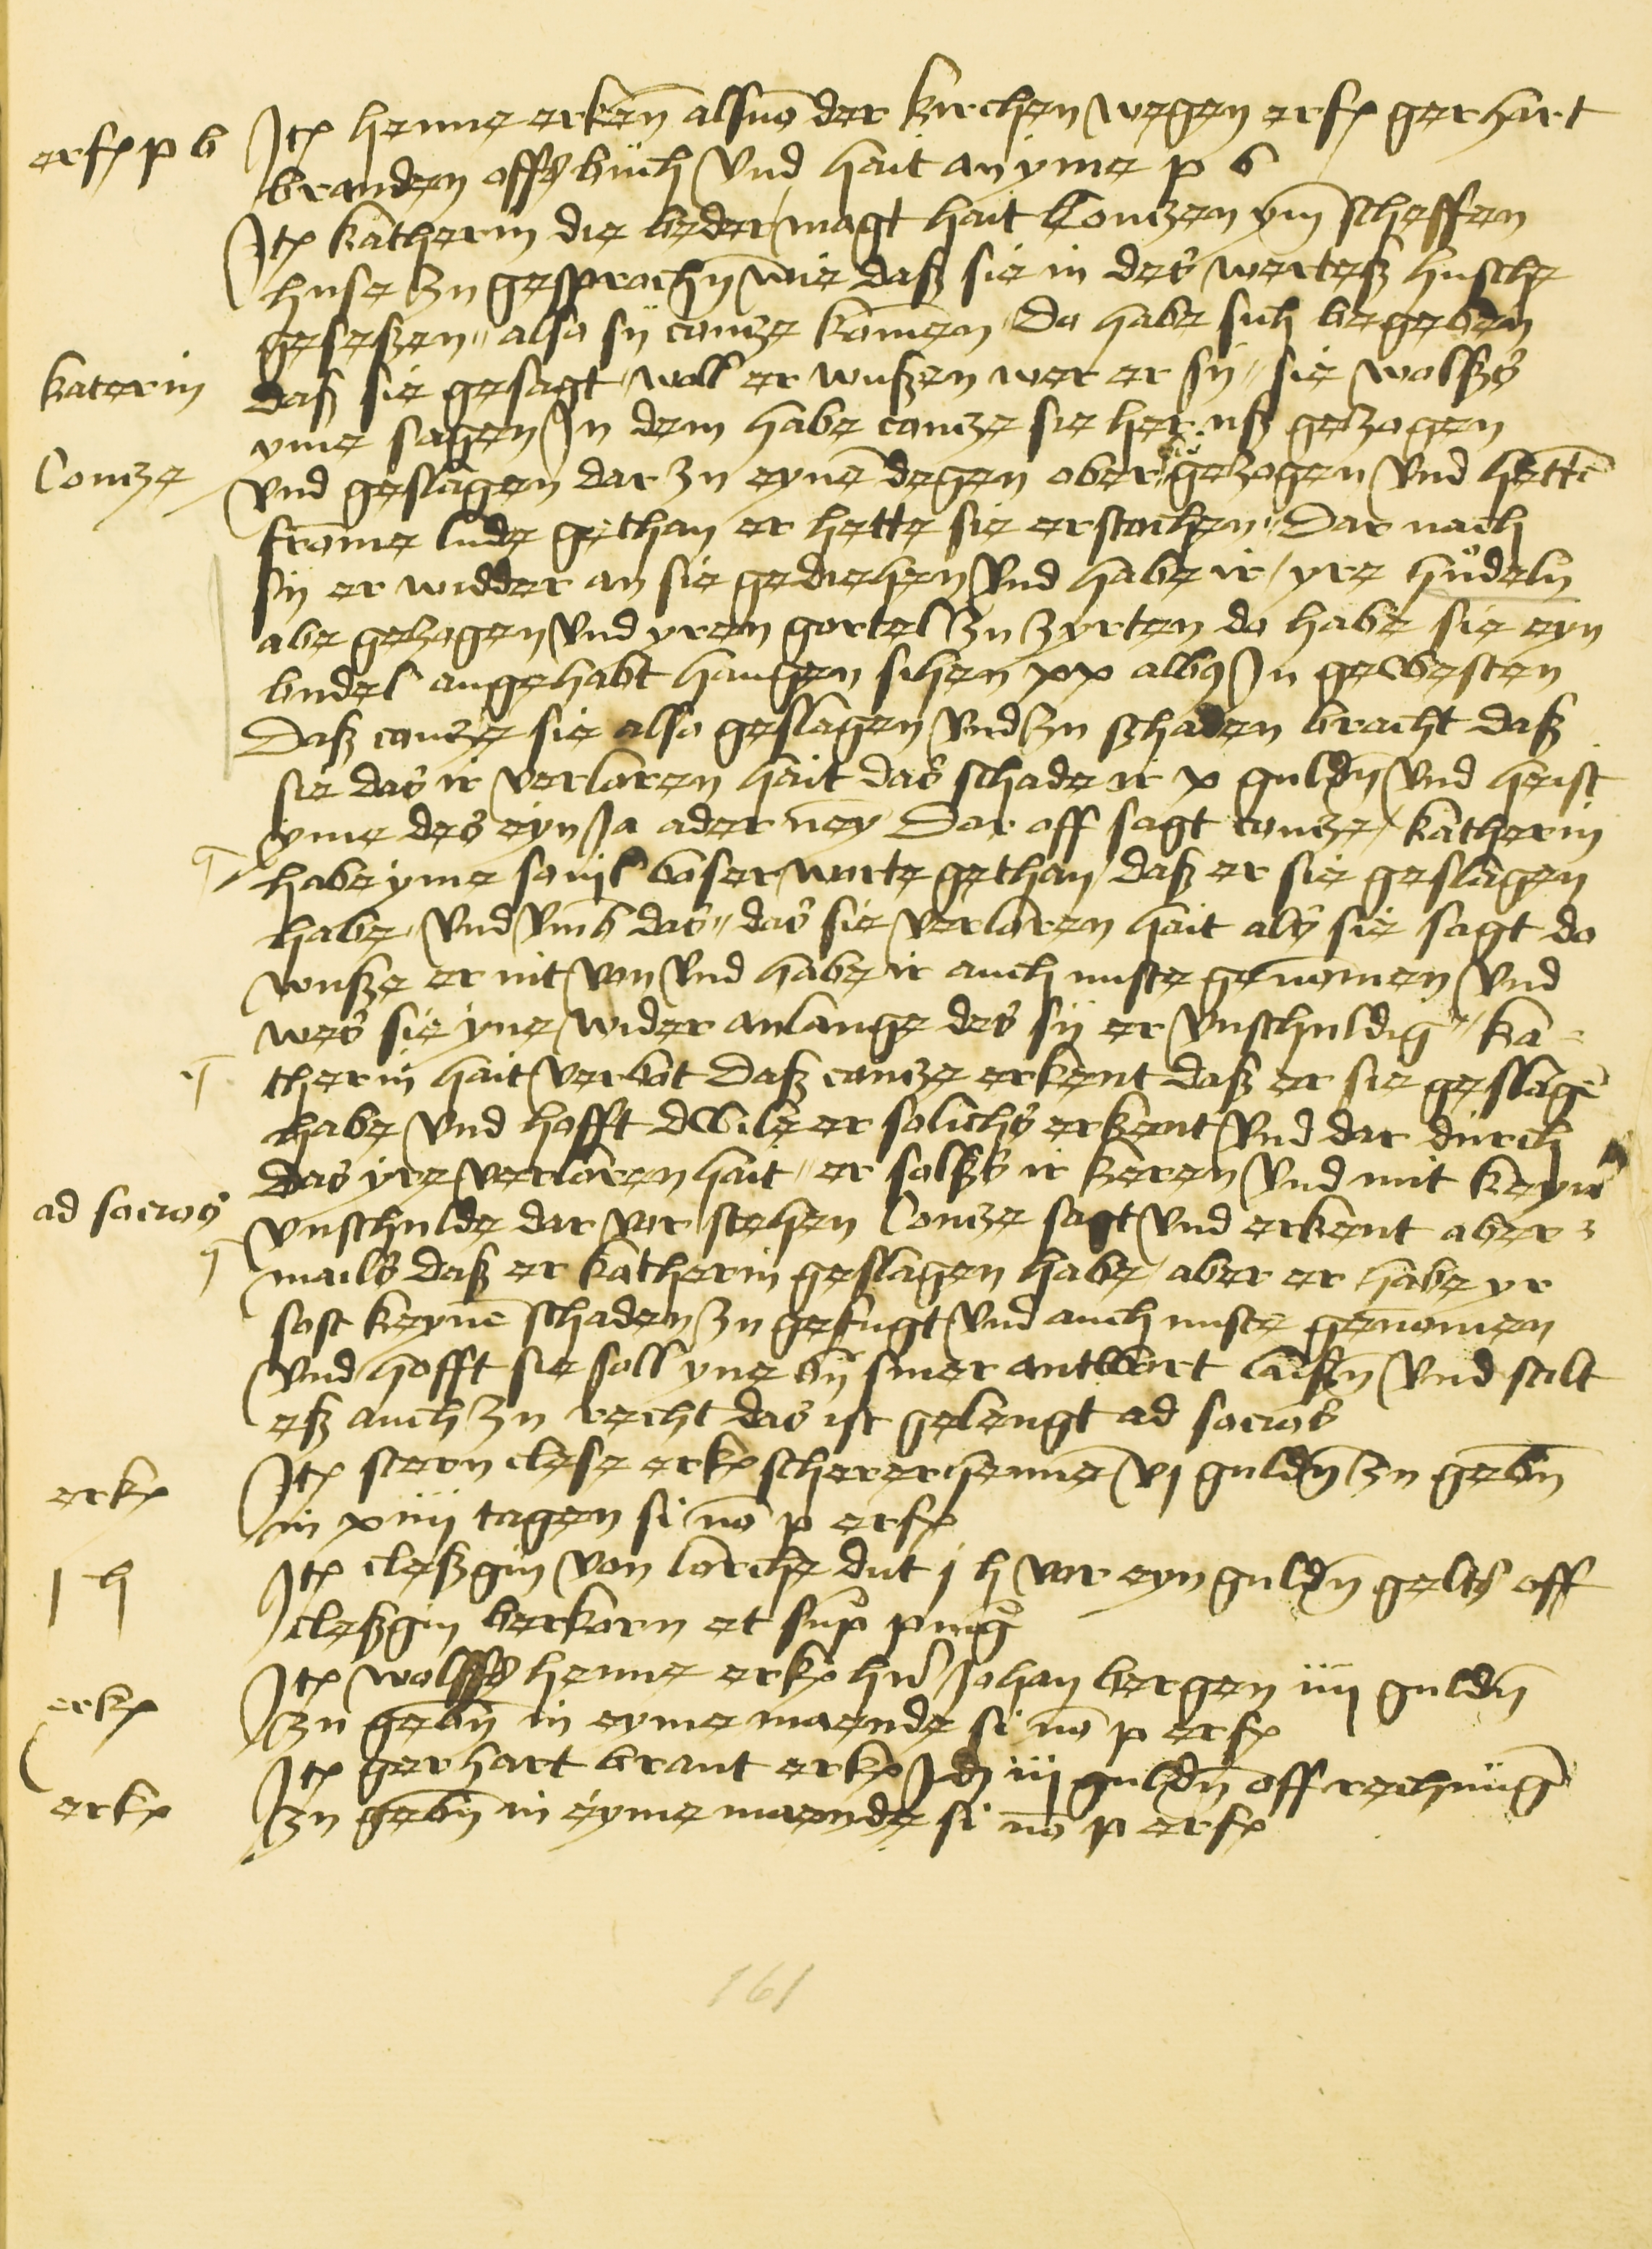 erfx p b
Itx henne erken̄ als mō der kirchen wegen erfx gerhart
branden offs buch vnd hait an yme p b
Itx katherin die beder magt hait Contzen ym̄ scheffen
huse zu gesprochn̄ wie daß sie in des werteß husche
geseßen also sij contze komen Do habe sich begeben
katerin
daß sie gesagt woll er wußen wer er sij sie wolßs
yme sagen In dem habe contze sie her uß gezogen
Contze
vnd geslagen dar zu eynē degen ober sie gezogen vnd hettē
frome lude gethan er hette sie erstochen Dar nach
sij er widder an sie gediehen vnd habe ir yre hudeln
abe gezogen vnd yren gortel zu zyrten do habe sie eyn
budel angehabt hangen sihen xx albus In gewesten
Daß contze sie also geslagen vnd zu schaden bracht daß
sie das ir verloren hait das schade ir x guldn̄ vnd heist
yme des eyn Ja ader ney Dar off sagt contze katherin
habe yme souil boser worte gethan daß er sie geslagen
habe vnd vmb das das sie verloren hait als sie sagt do
wuße er nit von vnd habe ir auch nuste genomen vnd
wes sie yne wider anlange des sij er vnschuldig ka-
therin hait verbot Daß contze erkent daß er sie geslagē
habe vnd hofft dwile er solichs erkent vnd dar durch
das yre verloren hait er solßs ir keren vnd mit keynr
ad socios
vnschulde dar vor stehen Contze sagt vnd erkent aber
mails daß er katherin geslagen habe aber er habe yr
sost keynē schaden zu gefugt vnd auch nuste genomen
vnd hofft sie soll yne bij siner antwort laißn̄ vnd stelt
eß auch zu recht das ist gelengt ad socios
erkx
Itx stern clese erkx scherer henne vj guldn̄ zu gebn̄
in xiiij tagen si nō p erfx
j h
Itx cleßgin von lorche dut j h vor eyn guldn̄ gelts off
cleßgin berkorn et sup pnīg
erkx
Itx wolffs henne erkx hr̄ Johan bergen iiij guldn̄
zu gebn̄ in eyme maende si nō p erfx
erkx
Itx gerhart brant erkx iij guldn̄ off rechnūg
zu gebn̄ in eyme maende si nō p erfx
161